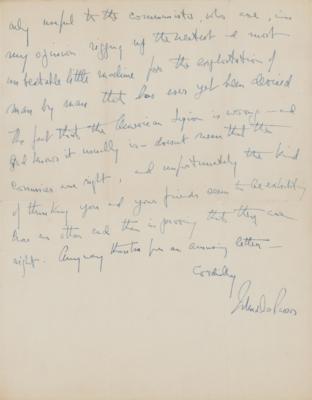 only useful to the communists, who are, in
my opinion rigging up the neatest & most
unbeatable little machine for the exploitation of
man by man that has ever yet been devised
The fact that the American Legion is wrong — and
God knows it usually is — doesnt mean that the
commies are right, and unfortunately the kind
of thinking you and your friends seem to be exhibiting
has no other end than in proving that they are
right. Anyway thanks for an amusing letter —
Cordially
John Dos Passos